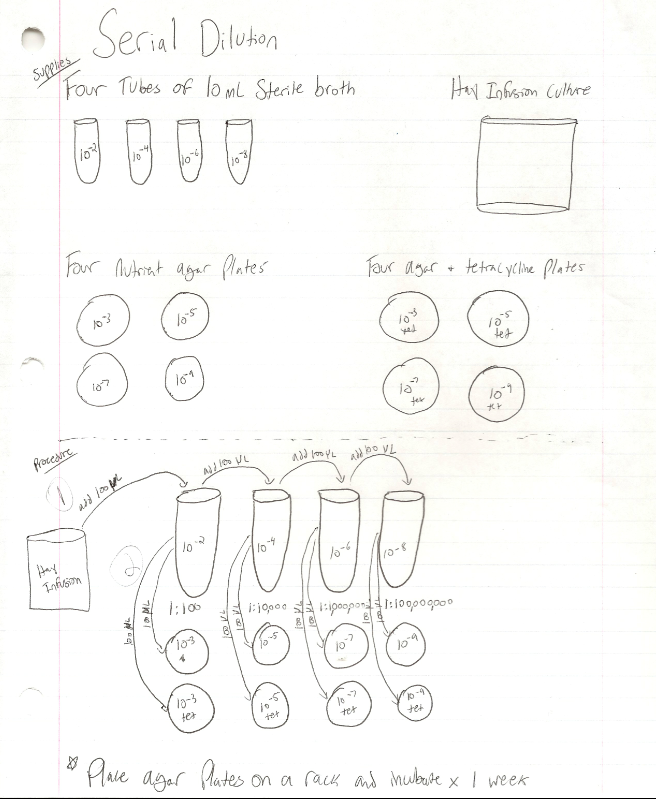 Serial Dilution
Supplies
Four Tubes of 10 mL Sterile broth
Hay Infusion Culture
10⁻² 10⁻⁴ 10⁻⁶ 10⁻⁸
Four nutrient agar Plates
Four agar + tetracycline Plates
10⁻³ 10⁻⁵
10⁻³ 10⁻⁵
tet
10⁻⁷ 10⁻⁹
10⁻⁷ 10⁻⁹
tet tet
Procedure
1
add 100 µL add 100 µL add 100 µL add 100 µL
Hay
Infusion
2
10⁻² 10⁻⁴ 10⁻⁶ 10⁻⁸
1:100 1:10,000 1:1000,000 1:100,000,000
100 µL 100 µL 100 µL 100 µL 100 µL 100 µL
10⁻³ 10⁻⁵ 10⁻⁷ 10⁻⁹
10⁻³ 10⁻⁵ 10⁻⁷ 10⁻⁹
tet tet tet tet
* Place agar Plates on a rack and incubate x 1 week